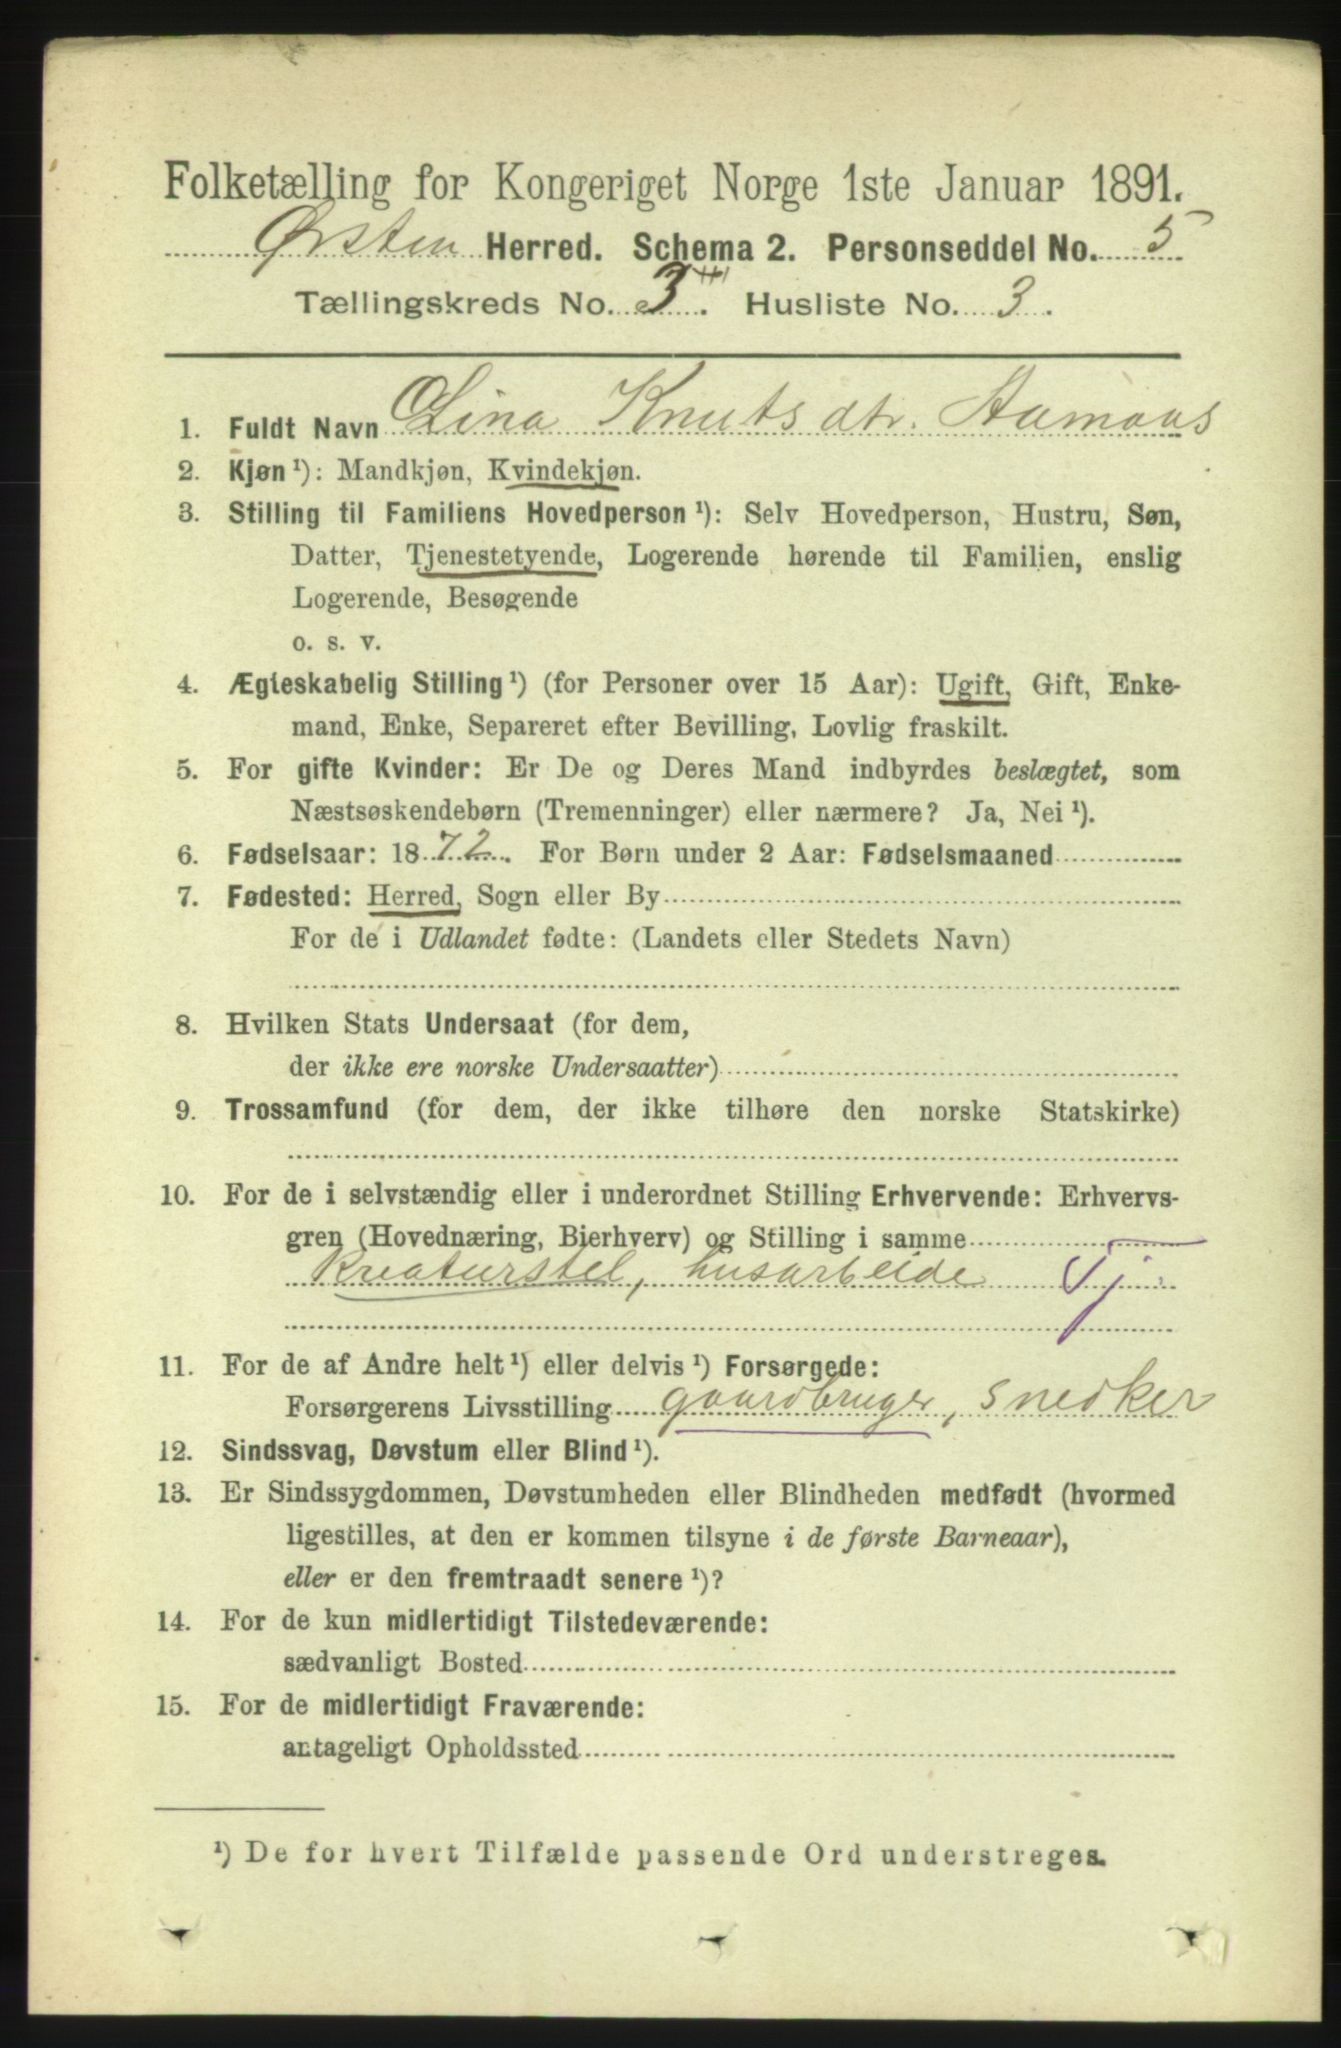 Folketælling for Kongeriget Norge 1ste Januar 1891.
Ørsten Herred. Schema 2. Personseddel No. 5
Tællingskreds No. 3. Husliste No. 3.
1. Fuldt Navn Lina Knutsdtr. Aamaas
2. Kjøn ¹): Mandkjøn, Kvindekjøn.
3. Stilling til Familiens Hovedperson ¹): Selv Hovedperson, Hustru, Søn,
Datter, Tjenestetyende, Logerende hørende til Familien, enslig
Logerende, Besøgende
o. s. v.
4. Ægteskabelig Stilling ¹) (for Personer over 15 Aar): Ugift, Gift, Enke-
mand, Enke, Separeret efter Bevilling, Lovlig fraskilt.
5. For gifte Kvinder: Er De og Deres Mand indbyrdes beslægtet, som
Næstsøskendebørn (Tremenninger) eller nærmere? Ja, Nei ¹).
6. Fødselsaar: 1872. For Børn under 2 Aar: Fødselsmaaned
7. Fødested: Herred, Sogn eller By
For de i Udlandet fødte: (Landets eller Stedets Navn)
8. Hvilken Stats Undersaat (for dem,
der ikke ere norske Undersaatter)
9. Trossamfund (for dem, der ikke tilhøre den norske Statskirke)
10. For de i selvstændig eller i underordnet Stilling Erhvervende: Erhvervs-
gren (Hovednæring, Bierhverv) og Stilling i samme
Kreaturstel, husarbeide Tj.
11. For de af Andre helt ¹) eller delvis ¹) Forsørgede:
Forsørgerens Livsstilling gaardbruger, snedker
12. Sindssvag, Døvstum eller Blind ¹).
13. Er Sindssygdommen, Døvstumheden eller Blindheden medfødt (hvormed
ligestilles, at den er kommen tilsyne i de første Barneaar),
eller er den fremtraadt senere ¹)?
14. For de kun midlertidigt Tilstedeværende:
sædvanligt Bosted
15. For de midlertidigt Fraværende:
antageligt Opholdssted
¹) De for hvert Tilfælde passende Ord understreges.